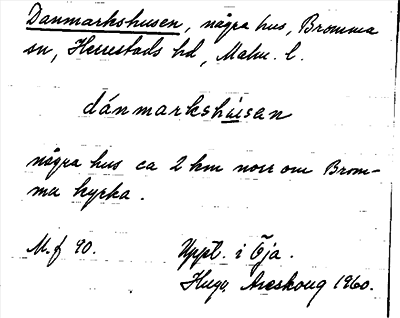 Danmarkshusen, några hus, Bromma
sn, Herrestads hd, Malm. l.
dánmarkshùsan
några hus ca 2 km norr om Brom-
ma kyrka.
M.f 90. Uppt. i Öja.
Hugo Areskoug 1960.